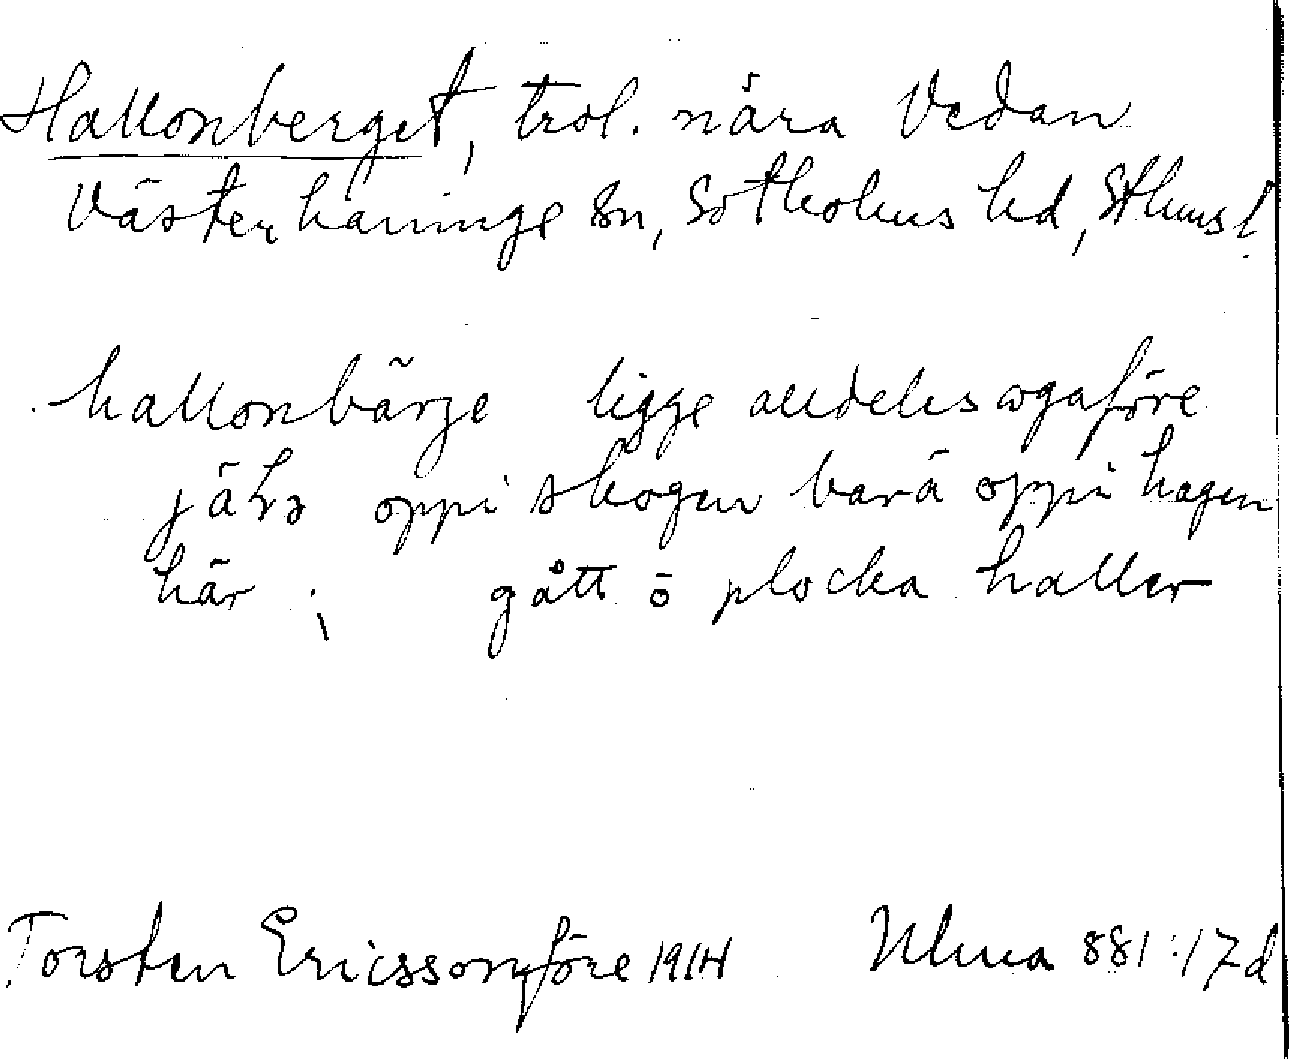 Hallonberget, trol. nära Vedan
Västerhaninge sn, Sotholms hd, Sthms l.
hallonbärje ligge alldeles ogaföre
jähs oppi skogen barä oppi hagen
här ; gått ō plocka haller
Torsten Ericsson före 1914 Ulma 881:17d